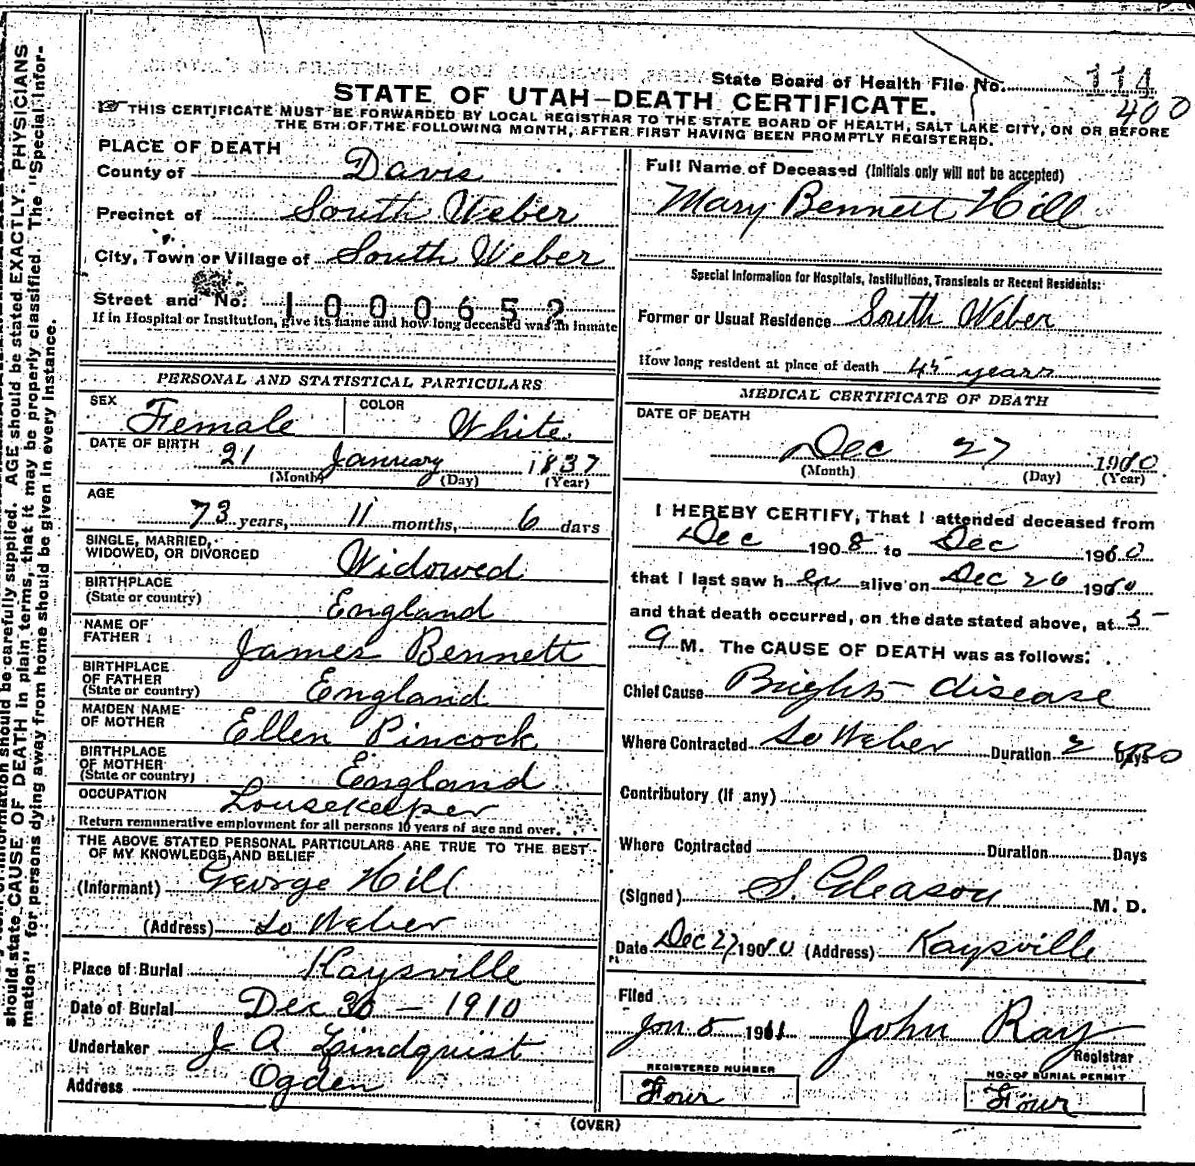 State Board of Health File No. 114
400
STATE OF UTAH—DEATH CERTIFICATE.
THIS CERTIFICATE MUST BE FORWARDED BY LOCAL REGISTRAR TO THE STATE BOARD OF HEALTH, SALT LAKE CITY, ON OR BEFORE
THE 5TH OF THE FOLLOWING MONTH, AFTER FIRST HAVING BEEN PROMPTLY REGISTERED.
PLACE OF DEATH
County of Davis
Precinct of South Weber
City, Town or Village of South Weber
Street and No. 1000652
If in Hospital or Institution, give its name and how long deceased was an inmate
PERSONAL AND STATISTICAL PARTICULARS
SEX Female COLOR White
DATE OF BIRTH 21 January 1837
(Month) (Day) (Year)
AGE
73 years, 11 months, 6 days
SINGLE, MARRIED,
WIDOWED, OR DIVORCED Widowed
BIRTHPLACE
(State or country) England
NAME OF
FATHER James Bennett
BIRTHPLACE
OF FATHER
(State or country) England
MAIDEN NAME
OF MOTHER Ellen Pincock
BIRTHPLACE
OF MOTHER
(State or country) England
OCCUPATION Housekeeper
Return remunerative employment for all persons 10 years of age and over.
THE ABOVE STATED PERSONAL PARTICULARS ARE TRUE TO THE BEST
OF MY KNOWLEDGE AND BELIEF
(Informant) George Hill
(Address) So Weber
Place of Burial Kaysville
Date of Burial Dec 30 - 1910
Undertaker J A Lindquist
Address Ogden
Full Name of Deceased (Initials only will not be accepted)
Mary Bennett Hill
Special Information for Hospitals, Institutions, Transients or Recent Residents:
Former or Usual Residence South Weber
How long resident at place of death 45 years
MEDICAL CERTIFICATE OF DEATH
DATE OF DEATH
Dec 27 1910.
(Month) (Day) (Year)
I HEREBY CERTIFY, That I attended deceased from
Dec 1908 to Dec 1910
that I last saw her alive on Dec 26 1910
and that death occurred, on the date stated above, at 5
a M. The CAUSE OF DEATH was as follows:
Chief Cause Brights disease
Where Contracted So Weber Duration 2 Days
Contributory (If any)
Where Contracted Duration Days
(Signed) S. Gleason M. D.
Date Dec 27 1910 (Address) Kaysville
Filed
Jan 5 1911 John Ray
Registrar
REGISTERED NUMBER
Four
NO. OF BURIAL PERMIT
Four
(OVER)
information should be carefully supplied. AGE should be stated EXACTLY. PHYSICIANS
should state CAUSE OF DEATH in plain terms, that it may be properly classified. The "Special Infor-
mation" for persons dying away from home should be given in every instance.